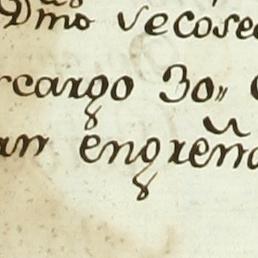 Dmo Vecose
rcargo 30,,
an engreña